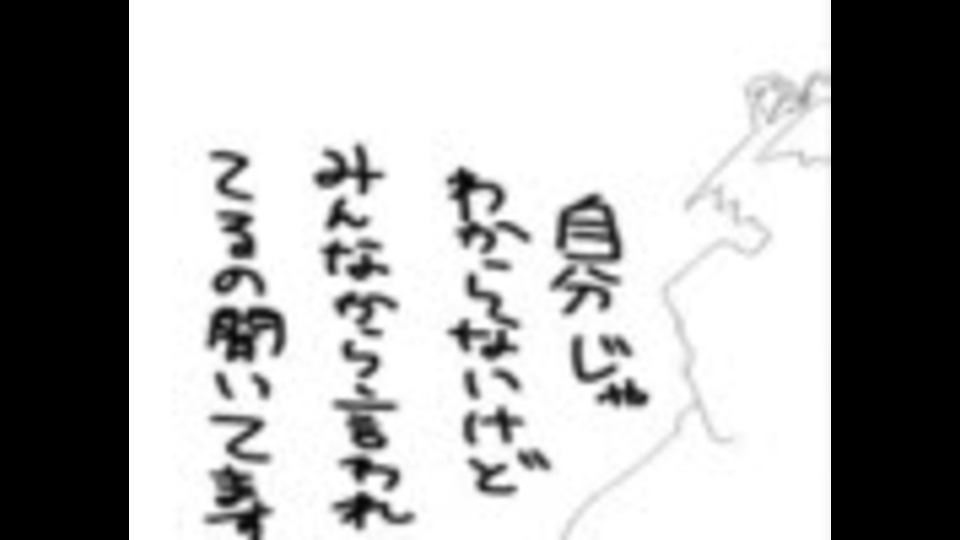 自分じゃ
わからないけど
みんなから言われ
てるの聞いてます